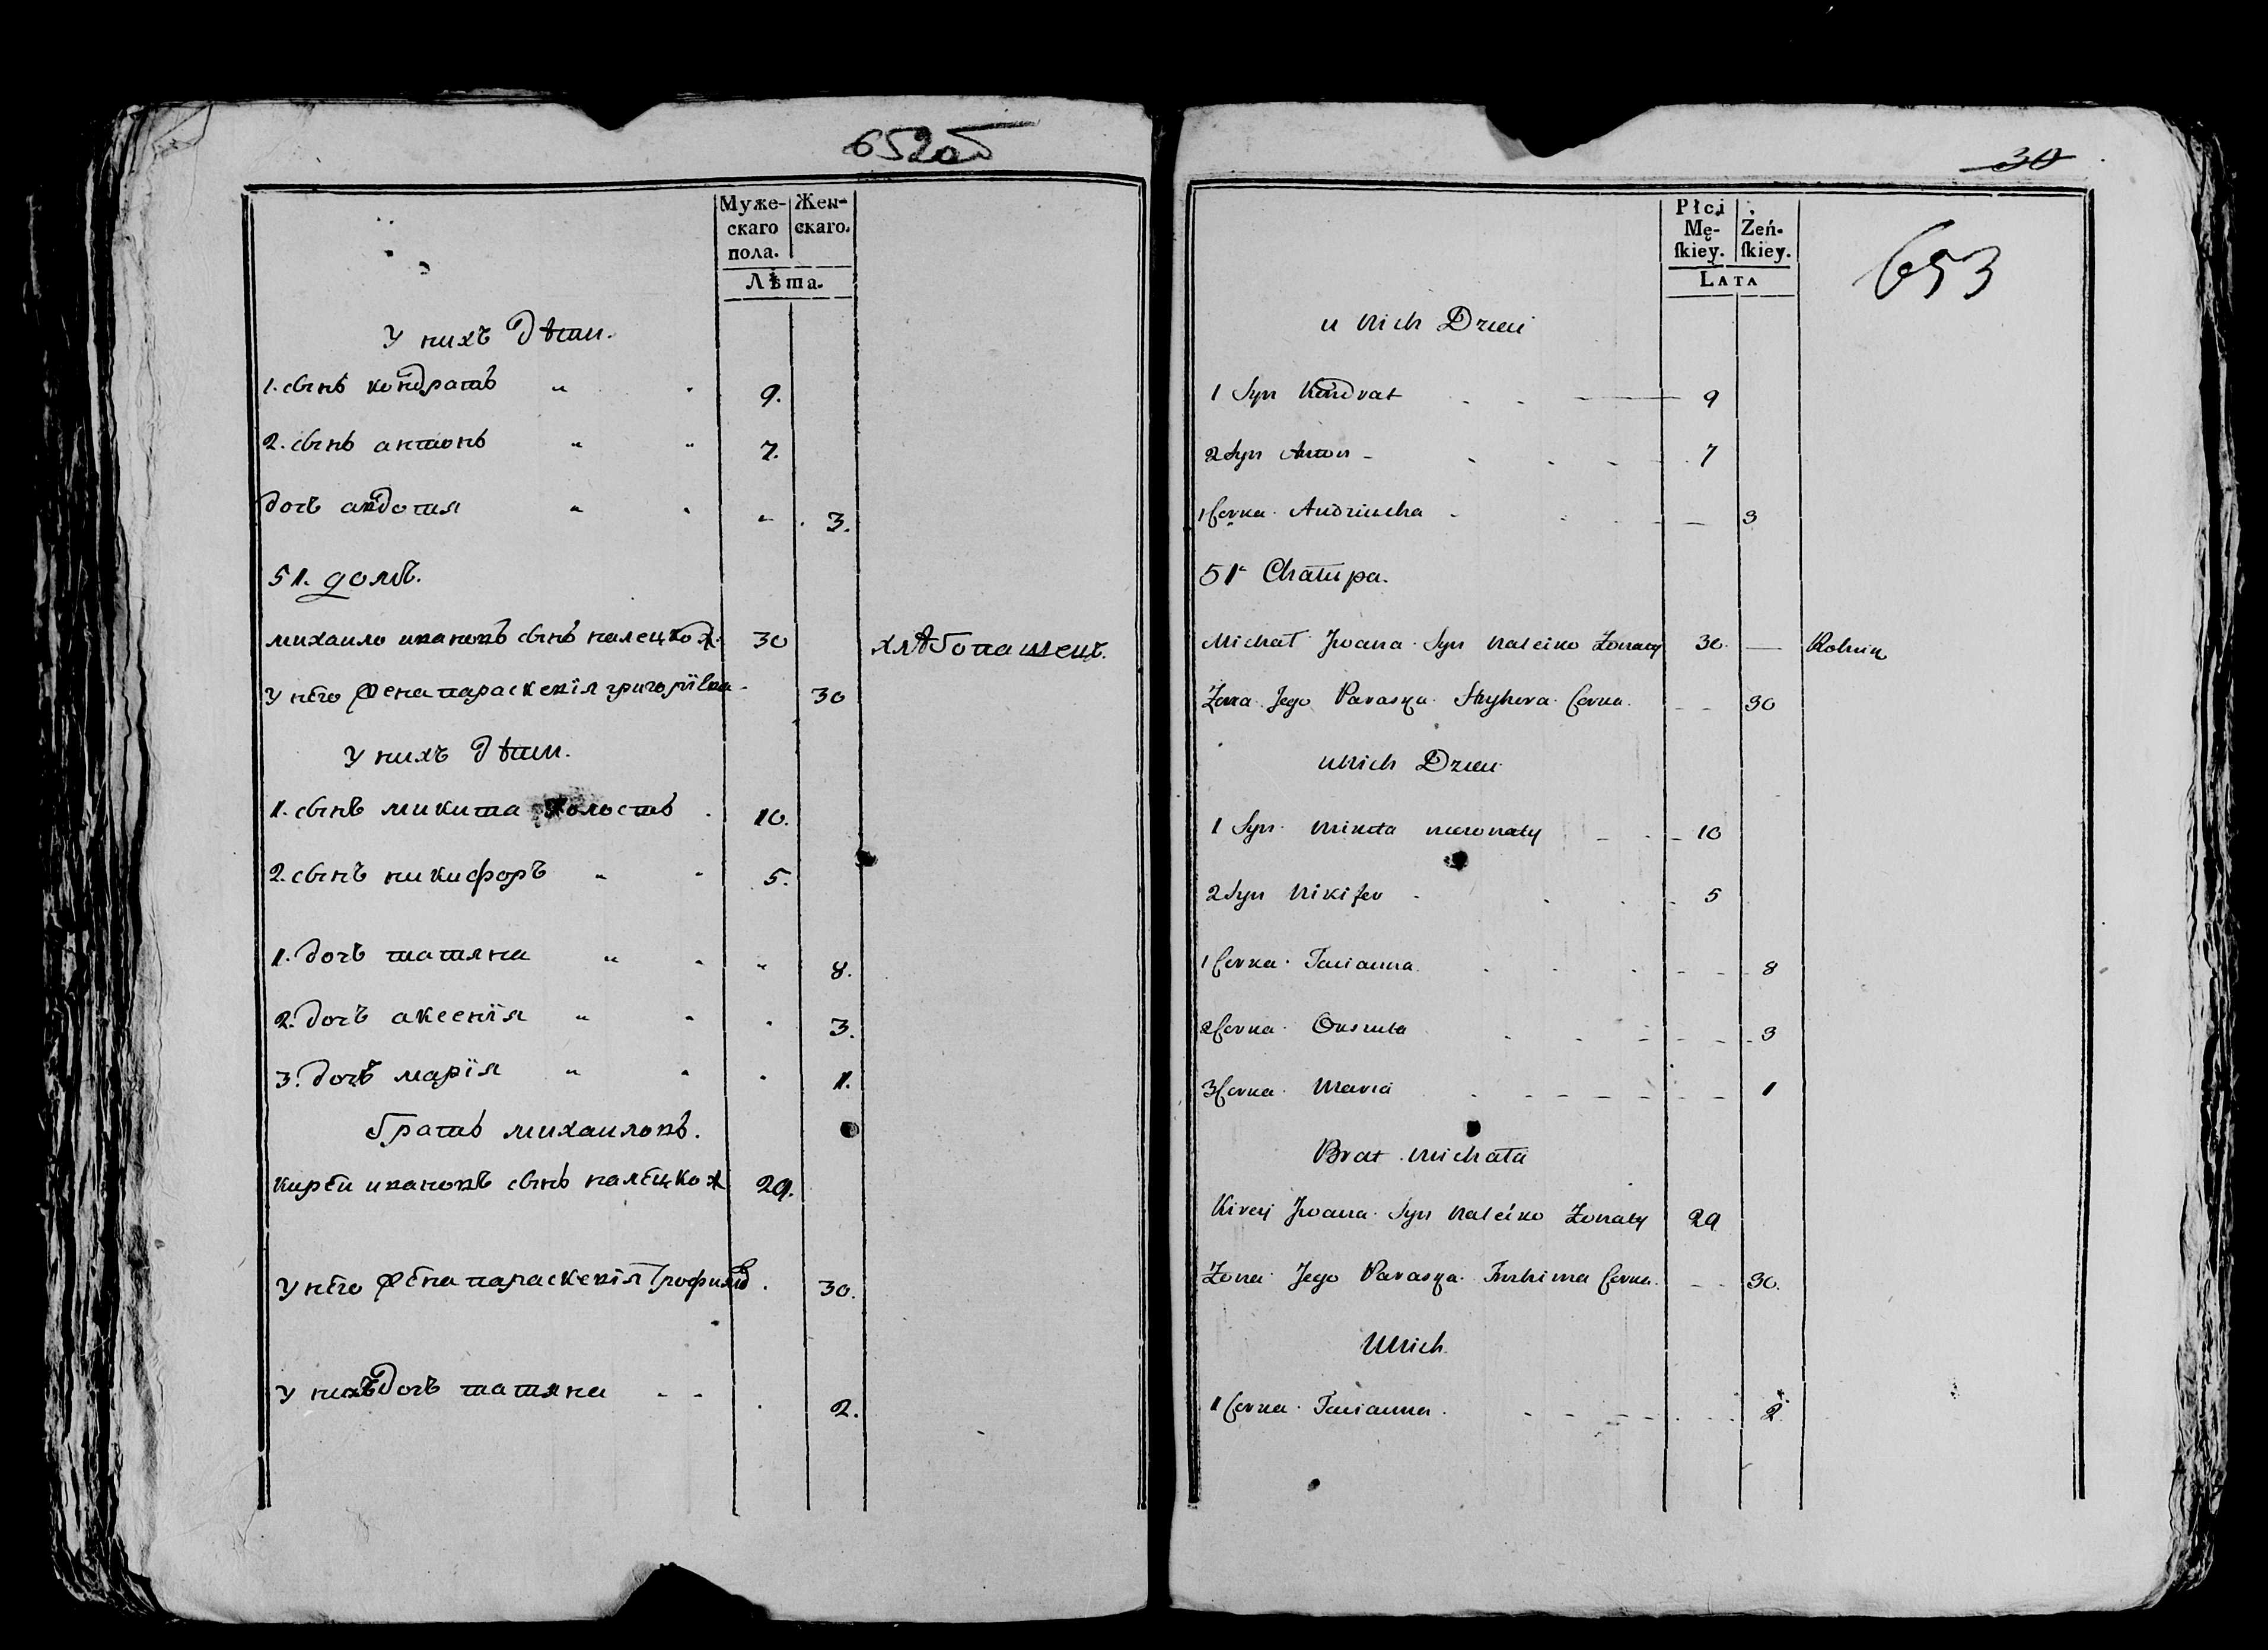 652об
Муже-
скаго
пола.
Жен-
скаго.
Лѣта.
У нихъ дѣти.
1. сынъ кондратъ " . 9.
2. сынъ антонъ " " 7.
дочъ авдотия " . " . 3.
51. домъ.
михаило ивановъ сынъ налецко ж. 30 хлѣбопашецъ.
У него жена параскевїя григорїівна 30
У нихъ дѣти.
1. сынъ микита холостъ . 10.
2. сынъ никифоръ " " 5.
1. дочъ татяна " . " 8.
2. дочъ аксенїя " . . 3.
3. дочъ марїя " . . 1.
братъ михаиловъ.
кирей ивановъ сынъ налецко ж 29.
У него жена параскевїя 30.
У нихъ дочъ татяна - - . 2.
30
653
Płci
Mę-
ſkiey.
Żeń-
ſkiey.
LATA
u Nich Dzieci
1 Syn Kondrat 9
2 Syn Anton 7
1 Corka 3
51 Chałupa.
Michał Jwana Syn Naleiko Żonaty 30 — Rolnik
Żona Jego Paraska Corka 30
u Nich Dzieci
1 Syn Mikita nieżonaty 10
2 Syn Nikifor 5
1 Corka Tacianna 8
2 Corka 3
3 Corka Maria 1
Brat Michała
Kirey Jwana Syn Naleiko Żonaty 29
Żona Jego Paraska Corka 30.
U Nich
1 Corka Tacianna 2